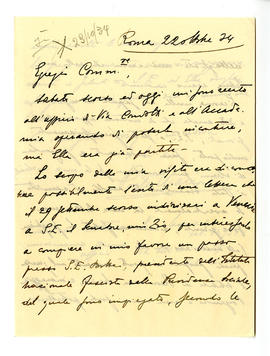 23/10/34
Roma 22 8bre 34
Egregio Comm.re,
Sabato scorso ed oggi mi sono recato
all'ufficio di Via Condotti e all'Accade-
mia sperando di poterla incontrare,
ma Ella era già partita.
Lo scopo della mia visita era di
possibilmente di una lettera che
il 29 settembre scorso indirizzai a
S.E. il Senatore, mio Zio, per
a compiere in mio favore un passo
presso S.E. presidente dell'Istituto
Nazionale Fascista della Previdenza Sociale,
del quale sono impiegato, facendo le